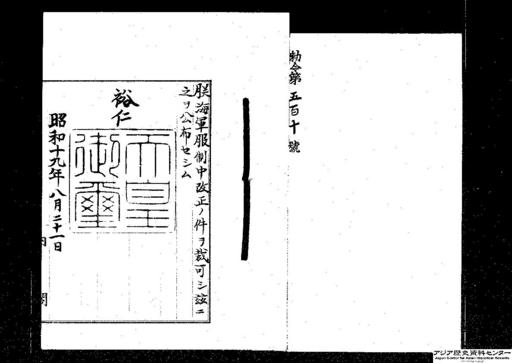 勅令第五百十號
朕海軍服制中改正ノ件ヲ裁可シ玆ニ
之ヲ公布セシム
裕仁
天皇御璽
昭和十九年八月二十一日
内閣
アジア歴史資料センター
Japan Center for Asian Historical Records